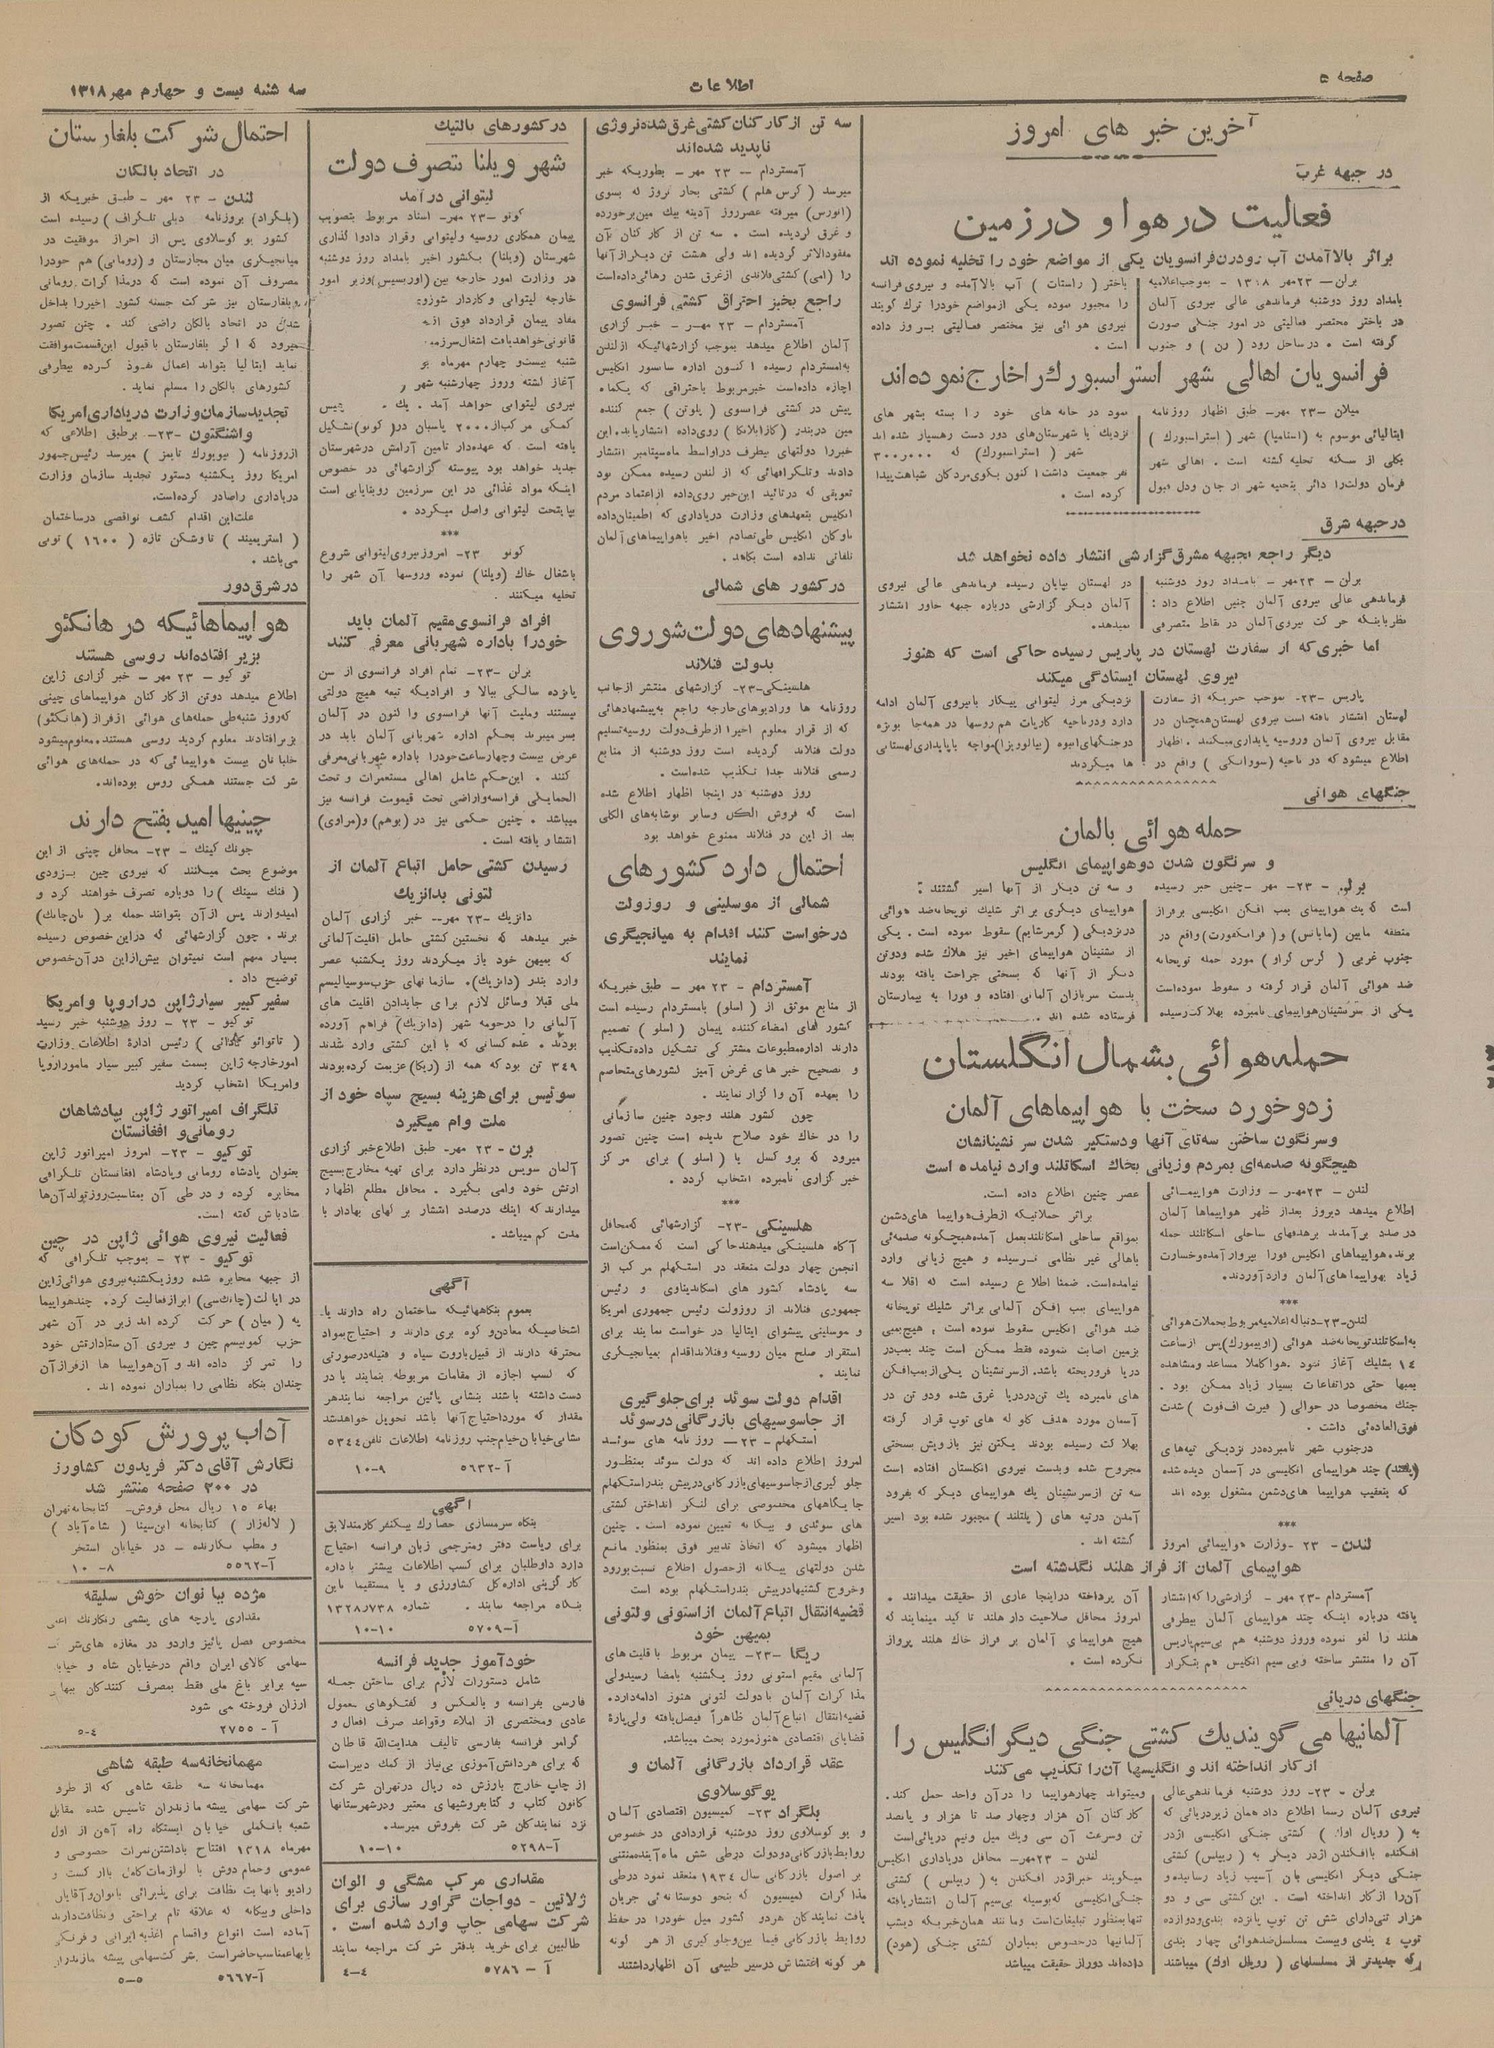 صفحه ۵
اطلاعات
سه شنبه بیست و چهارم مهر ۱۳۱۸
آخرین خبرهای امروز
در جبهه غرب
فعالیت در هوا و در زمین
براثر بالاآمدن آب رودرن فرانسویان یکی از مواضع خود را تخلیه نموده اند
برلن — ۲۳ مهر ۱۳۱۸ - بموجب اعلامیه
بامداد روز دوشنبه فرماندهی عالی نیروی آلمان
در باختر مختصر فعالیتی در امور جنگی صورت
گرفته است . در ساحل رود ( رن ) و جنوب
باختر ( راستات ) آب بالا آمده و نیروی فرانسه
را مجبور نموده یکی از مواضع خود را ترك گویند
نیروی هوائی نیز مختصر فعالیتی بروز داده
است .
فرانسویان اهالی شهر استراسبورك را خارج نموده اند
میلان —۲۳ مهر— طبق اظهار روزنامه
ایتالیائی موسوم به (استامپا) شهر ( استراسبورك )
بکلی از سکنه تخلیه گشته است . اهالی شهر
فرمان دولت را دائر بتخلیه شهر از جان ودل قبول
نمود در خانه های خود را بسته بشهر های
نزدیك یا شهرستان‌های دور دست رهسپار شده اند
شهر ( استراسبورك ) که ۳۰۰ر۰۰۰
نفر جمعیت داشت اکنون بکوی مردگان شباهت پیدا
کرده است .
در جبهه شرق
دیگر راجع بجبهه مشرق گزارشی انتشار داده نخواهد شد
برلن — ۲۳ مهر — بامداد روز دوشنبه
فرماندهی عالی نیروی آلمان چنین اطلاع داد :
نظر باینکه حرکت نیروی آلمان در نقاط متصرفی
در لهستان بپایان رسیده فرماندهی عالی نیروی
آلمان دیگر گزارشی درباره جبهه خاور انتشار
نمیدهد.
اما خبری که از سفارت لهستان در پاریس رسیده حاکی است که هنوز
نیروی لهستان ایستادگی میکند
پاریس —۲۳— بموجب خبریکه از سفارت
لهستان انتشار یافته است نیروی لهستان همچنان در
مقابل نیروی آلمان وروسیه پایداری میکنند . اظهار
اطلاع میشود که در ناحیه (سووالکی) واقع در
نزدیکی مرز لیتوانی پیکار با نیروی آلمان ادامه
دارد ودرناحیه کارپات هم روسها در همه‌جا بویژه
در جنگهای انبوه (بیالوویزا) مواجه با پایداری لهستانی
ها میگردند
جنگهای هوائی
حمله هوائی بالمان
و سرنگون شدن دو هواپیمای انگلیس
برلن — ۲۳ مهر — چنین خبر رسیده
است که یك هواپیمای بمب افکن انگلیسی برفراز
منطقه مابین (مایانس) و (فرانکفورت) واقع در
جنوب غربی ( گرس گراو ) مورد حمله توپخانه
ضد هوائی آلمان قرار گرفته و سقوط نموده است
یکی از سرنشینان هواپیمای نامبرده بهلاکت رسیده
و سه تن دیگر از آنها اسیر گشتند .
هواپیمای دیگری براثر شلیك توپخانه ضد هوائی
در نزدیکی ( گرمرشایم) سقوط نموده است . یکی
از سرنشینان هواپیمای اخیر نیز هلاك شده ودوتن
دیگر از آنها که بسختی جراحت یافته بودند
بدست سربازان آلمانی افتاده و فورا به بیمارستان
فرستاده شده اند .
حمله هوائی بشمال انگلستان
زدوخورد سخت با هواپیماهای آلمان
وسرنگون ساختن سه‌تای آنها ودستگیر شدن سرنشینانشان
هیچگونه صدمه‌ای بمردم وزیانی بخاك اسکاتلند وارد نیامده است
لندن — ۲۳ مهر — وزارت هواپیمائی
اطلاع میدهد دیروز بعداز ظهر هواپیماها آلمان
در صدد برآمدند برهدفهای ساحلی اسکاتلند حمله
برند . هواپیماهای انگلیس فورا بپرواز آمده وخسارت
زیاد بهواپیماهای آلمان وارد آوردند.
***
لندن —۲۳— دنباله اعلامیه مربوط بحملات هوائی
به اسکاتلند توپخانه ضد هوائی (اوپیمورك) پس از ساعت
۱۴ بشلیك آغاز نمود . هوا کاملا مساعد ومشاهده
بمبها حتی در ارتفاعات بسیار زیاد ممکن بود .
جنك مخصوصا در حوالی ( فیرت اف فوت ) شدت
فوق‌العاده‌ئی داشت .
درجنوب شهر نامبرده در نزدیکی تپه‌های
چند هواپیمای انگلیسی در آسمان دیده شده
که بتعقیب هواپیما های دشمن مشغول بوده اند
***
لندن — ۲۳ —وزارت هواپیمائی امروز
عصر چنین اطلاع داده است.
براثر حملاتیکه از طرف هواپیما های دشمن
بمواقع ساحلی اسکاتلند بعمل آمده هیچگونه صدمه‌ئی
باهالی غیر نظامی نرسیده و هیچ زیانی وارد
نیامده است. ضمنا اطلاع رسیده است که اقلا سه
هواپیمای بمب افکن آلمانی براثر شلیك توپخانه
ضد هوائی انگلیس سقوط نموده است ؛ هیچ بمبی
بزمین اصابت ننموده فقط ممکن است چند بمب در
دریا فروریخته باشد. از سرنشینان یکی از بمب افکن
های نامبرده یك تن در دریا غرق شده ودو تن در
آسمان مورد هدف گلوله های توپ قرار گرفته
بهلاکت رسیده بودند یکتن نیز بازویش بسختی
مجروح شده وبدست نیروی انگلستان افتاده است
سه تن از سرنشینان یك هواپیمای دیگر که بفرود
آمدن در تپه های ( پلتلند ) مجبور شده بود اسیر
گشته اند .
هواپیمای آلمان از فراز هلند نگذشته است
آمستردام —۲۳ مهر — گزارشی را که انتشار
یافته درباره اینکه چند هواپیمای آلمان بیطرفی
هلند را لغو نموده وروز دوشنبه هم بی‌سیم پاریس
آن را منتشر ساخته وبی‌سیم انگلیس هم بتکرار
آن پرداخته در اینجا عاری از حقیقت میدانند .
امروز محافل صلاحیت دار هلند تاکید مینمایند که
هیچ هواپیمای آلمان بر فراز خاك هلند پرواز
نکرده است .
جنگهای دریائی
آلمانیها می گویند یك کشتی جنگی دیگر انگلیس را
از کار انداخته اند و انگلیسها آن را تکذیب می کنند
برلن — ۲۳— روز دوشنبه فرماندهی عالی
نیروی آلمان رسما اطلاع داد همان زیردریائی که
به ( رویال اوك ) کشتی جنگی انگلیسی اژدر
افکنده با افکندن اژدر دیگر به ( رپلس) کشتی
جنگی دیگر انگلیسی بان آسیب زیاد رسانیده و
آن را از کار انداخته است . این کشتی سی و دو
هزار تنی دارای شش تن توپ پانزده بندی ودوازده
توپ ٤ بندی وبیست مسلسل ضد هوائی چهار بندی
که جدیدتر از مسلسلهای ( رویال اوك) میباشند
ومیتواند چهار هواپیما را در آن واحد حمل کند.
کارکنان آن هزار وچهار صد تا هزار و پانصد
تن وسرعت آن سی ویك میل ونیم دریائی است
لندن — ۲۳مهر — محافل دریاداری انگلیس
میگویند خبر اژدر افکندن به ( رپلس ) کشتی
جنگی انگلیسی که بوسیله بی‌سیم آلمان انتشار یافته
تنها بمنظور تبلیغات است ومانند همان خبریکه دیشب
آلمانیها درخصوص بمباران کشتی جنگی (هود)
داده‌اند دور از حقیقت میباشد
سه تن از کارکنان کشتی غرق شده نروژی
ناپدید شده‌اند
آمستردام — ۲۳ مهر — بطوریکه خبر
میرسد ( گرس هلم ) کشتی بخار نروژ که بسوی
(انورس) میرفته عصر روز آدینه بیك مین برخورده
و غرق گردیده است . سه تن از کارکنان آن
مفقودالاثر گردیده اند ولی هشت تن دیگر از آنها
را (امی) کشتی فلاندی از غرق شدن رهائی داده است
راجع بخبر احتراق کشتی فرانسوی
آمستردام — ۲۳ مهر — خبر گزاری
آلمان اطلاع میدهد بموجب گزارشهائیکه از لندن
به امستردام رسیده اکنون اداره سانسور انگلیس
اجازه داده است خبر مربوط باحتراقی که یکماه
پیش در کشتی فرانسوی ( پلوتن ) جمع کننده
مین در بندر ( کازابلانکا ) روی داده انتشار یابد. این
خبررا دولتهای بیطرف در اواسط ماه سپتامبر انتشار
دادند وتلگرافهائی که از لندن رسیده ممکن بود
تعویقی که در تائید این خبر روی داده از اعتماد مردم
انگلیس بتعهدهای وزارت دریاداری که اطمینان داده
ناوگان انگلیس طی تصادم اخیر با هواپیماهای آلمان
تلفاتی نداده است بکاهد.
در کشور های شمالی
پیشنهادهای دولت شوروی
بدولت فنلاند
هلسینکی —۲۳— گزارشهای منتشر از جانب
روزنامه ها ورادیوهای خارجه راجع به پیشنهادهائی
که از قرار معلوم اخیرا از طرف دولت روسیه تسلیم
دولت فنلاند گردیده است روز دوشنبه از منابع
رسمی فنلاند جدا تکذیب شده‌است .
روز دوشنبه در اینجا اظهار اطلاع شده
است که فروش الکل وسایر نوشابه‌های الکلی
بعد از این در فنلاند ممنوع خواهد بود
احتمال دارد کشورهای
شمالی از موسلینی و روزولت
درخواست کنند اقدام به میانجیگری
نمایند
آمستردام — ۲۳ مهر — طبق خبریکه
از منابع موثق از ( اسلو ) بامستردام رسیده است
کشور های امضاء کننده پیمان ( اسلو ) تصمیم
دارند اداره مطبوعات مشترکی تشکیل داده تکذیب
و تصحیح خبر های غرض آمیز کشورهای متخاصم
را بعهده آن واگزار نمایند .
چون کشور هلند وجود چنین سازمانی
را در خاك خود صلاح ندیده است چنین تصور
میرود که بروکسل یا ( اسلو ) برای مرکز
خبر گزاری نامبرده انتخاب گردد .
***
هلسینکی —۲۳— گزارشهائی که محافل
آگاه هلسینکی میدهند حاکی است که ممکن است
انجمن چهار دولت منعقد در استکهلم مرکب از
سه پادشاه کشور های اسکاندیناوی و رئیس
جمهوری فنلاند از روزولت رئیس جمهوری امریکا
و موسلینی پیشوای ایتالیا در خواست نمایند برای
استقرار صلح میان روسیه وفنلاند اقدام بمیانجیگری
نمایند .
اقدام دولت سوئد برای جلوگیری
از جاسوسیهای بازرگانی در سوئد
استکهلم — ۲۳ — روز نامه های سوئد
امروز اطلاع داده اند که دولت سوئد بمنظور
جلوگیری از جاسوسیهای بازرگانی در پیش بندر استکهلم
جایگاههای مخصوصی برای لنگر انداختن کشتی
های سوئدی و بیگانه تعیین نموده است . چنین
اظهار میشود که اتخاذ تدبیر فوق بمنظور مانع
شدن دولتهای بیگانه از حصول اطلاع نسبت بورود
وخروج کشتیها در پیش بندر استکهلم بوده است
قضیه انتقال اتباع آلمان از استونی ولتونی
بمیهن خود
ریگا —۲۳— پیمان مربوط با قلیت های
آلمانی مقیم استونی روز یکشنبه بامضا رسید ولی
مذاکرات آلمان با دولت لتونی هنوز ادامه دارد.
قضیه انتقال اتباع آلمان ظاهراً فیصل یافته ولی پارهٔ
قضایای اقتصادی هنوز مورد بحث میباشد.
عقد قرارداد بازرگانی آلمان و
یوگوسلاوی
بلگراد ۲۳— کمیسیون اقتصادی آلمان
و یوگوسلاوی روز دوشنبه قراردادی در خصوص
روابط بازرگانی دو دولت در طی شش ماه آینده مبتنی
بر اصول بازرگانی سال ۱۹۳٤ منعقد نمود در طی
مذاکرات کمیسیون که بنحو دوستانه‌ئی جریان
یافت نمایندگان هر دو کشور میل خود را در حفظ
روابط بازرگانی فیما بین و جلوگیری از هر گونه
هر گونه اغتشاش در سیر طبیعی آن اظهار داشتند
در کشورهای بالتیك
شهر ویلنا بتصرف دولت
لیتوانی درآمد
کونو —۲۳ مهر— اسناد مربوط بتصویب
پیمان همکاری روسیه ولیتوانی وقرار دادواگذاری
شهرستان (ویلنا) بکشور اخیر بامداد روز دوشنبه
در وزارت امور خارجه بین (اوربسیس) وزیر امور
خارجه لیتوانی وکاردار شوروی
مفاد پیمان قرارداد فوق
قانونی خواهد یافت اشغال سرزمین
شنبه بیست و چهارم مهرماه
آغاز گشته وروز چهارشنبه شهر
نیروی لیتوانی خواهد آمد . یك پلیس
کمکی مرکب از ۲۰۰۰ پاسبان در (کونو) تشکیل
یافته است که عهده‌دار تامین آرامش در شهرستان
جدید خواهد بود پیوسته گزارشهائی در خصوص
اینکه مواد غذائی در این سرزمین رو بنایابی است
بپایتخت لیتوانی واصل میگردد .
***
کونو ۲۳— امروز نیروی لیتوانی شروع
باشغال خاك (ویلنا) نموده وروسها آن شهر را
تخلیه میکنند .
افراد فرانسوی مقیم آلمان باید
خود را باداره شهربانی معرفی کنند
برلن —۲۳— تمام افراد فرانسوی از سن
پانزده سالگی ببالا و افرادیکه تبعه هیچ دولتی
نیستند وملیت آنها فرانسوی واکنون در آلمان
بسر میبرند بحکم اداره شهربانی آلمان باید در
عرض بیست وچهار ساعت خود را باداره شهربانی معرفی
کنند . این حکم شامل اهالی مستعمرات و تحت
الحمایگی فرانسه واراضی تحت قیمومت فرانسه نیز
میباشد . چنین حکمی نیز در (بوهم) و(مراوی)
انتشار یافته است .
رسیدن کشتی حامل اتباع آلمان از
لتونی بدانزیك
دانزیك —۲۳ مهر— خبر گزاری آلمان
خبر میدهد که نخستین کشتی حامل اقلیت آلمانی
که بمیهن خود باز میگردند روز یکشنبه عصر
وارد بندر (دانزیك) . سازمانهای حزب سوسیالیسم
ملی قبلا وسائل لازم برای جایدادن اقلیت های
آلمانی را درحومه شهر (دانزیك) فراهم آورده
بودند . عده کسانی که با این کشتی وارد شدند
۳٤۹ تن بود که همه از (ریگا) عزیمت کرده بودند
سوئیس برای هزینه بسیج سپاه خود از
ملت وام میگیرد
برن — ۲۳ مهر— طبق اطلاع خبر گزاری
آلمان سویس در نظر دارد برای تهیه مخارج بسیج
ارتش خود وامی بگیرد . محافل مطلع اظهار
میدارند که اینك درصدد انتشار برگهای بهادار با
مدت کم میباشد .
آگهی
بعموم بنگاههائیکه ساختمان راه دارند یا
اشخاصیکه معادن و کوه بری دارند و احتیاج بمواد
محترقه دارند از قبیل باروت سیاه و فتیله درصورتی
که کسب اجازه از مقامات مربوطه بنمایند یا در
دست داشته باشند بنشانی پائین مراجعه نمایند هر
مقدار که مورد احتیاج آنها باشد تحویل خواهد شد
نشانی خیابان خیام جنب روزنامه اطلاعات تلفن ۵۳٤٤
آ—۵۶۳۲ ۹—۱۰
آگهی
بنگاه سرم سازی حصارك بیکنفر کارمند لایق
برای ریاست دفتر ومترجمی زبان فرانسه احتیاج
دارد داوطلبان برای کسب اطلاعات بیشتر باداره
کار گزینی اداره کل کشاورزی و یا مستقیما باین
بنگاه مراجعه نمایند . شماره ۱۳۲۸ر۷۳۸
آ—۵۷۰۹ ۱۰—۱۰
خودآموز جدید فرانسه
شامل دستورات لازم برای ساختن جمله
فارسی بفرانسه و بالعکس و گفتگوهای معمول
عادی ومختصری از املاء وقواعد صرف افعال و
گرامر فرانسه بفارسی تالیف هدایت‌الله قاطان
که برای هر دانش آموزی بی‌نیاز از کمك دبیر است
از چاپ خارج بارزش ده ریال در تهران شرکت
کانون کتاب و کتابفروشیهای معتبر ودر شهرستانها
نزد نمایندگان شرکت بفروش میرسد.
آ—۵۲۹۸ ۱۰—۱۰
مقداری مرکب مشگی و الوان
ژلاتین — دواجات گراور سازی برای
شرکت سهامی چاپ وارد شده است .
طالبین برای خرید بدفتر شرکت مراجعه نمایند
آ — ۵۷۸۶ ٤—٤
احتمال شرکت بلغارستان
در اتحاد بالکان
لندن — ۲۳ مهر — طبق خبریکه از
(بلگراد) بروزنامه دیلی تلگراف) رسیده است
کشور یوگوسلاوی پس از احراز موفقیت در
میانجیگری میان مجارستان و (رومانی) هم خود را
مصروف آن نموده است که در مذاکرات رومانی
وبلغارستان نیز شرکت جسته کشور اخیر را بداخل
شدن در اتحاد بالکان راضی کند . چنین تصور
میرود که اگر بلغارستان با قبول این قسمت موافقت
نماید ایتالیا بتواند اعمال نفوذ کرده بیطرفی
کشورهای بالکان را مسلم نماید .
تجدید سازمان وزارت دریاداری امریکا
واشنگتون —۲۳— برطبق اطلاعی که
از روزنامه ( نیویورك تایمز ) میرسد رئیس‌جمهور
امریکا روز یکشنبه دستور تجدید سازمان وزارت
دریاداری را صادر کرده است.
علت این اقدام کشف نواقصی در ساختمان
( استریمیند ) ناوشکن تازه ( ۱۶۰۰ ) تونی
می‌باشد .
در شرق دور
هواپیماهائیکه در هانکئو
بزیر افتاده‌اند روسی هستند
توکیو — ۲۳ مهر — خبر گزاری ژاپن
اطلاع میدهد دوتن از کارکنان هواپیماهای چینی
که روز شنبه طی حمله‌های هوائی از فراز (هانکئو)
بزیر افتادند معلوم گردید روسی هستند. معلوم میشود
خلبانان بیست هواپیمائی که در حمله‌های هوائی
شرکت جستند همگی روس بوده‌اند.
چینیها امید بفتح دارند
چونك کینك — ۲۳— محافل چینی از این
موضوع بحث میکنند که نیروی چین بزودی
( فنك سینك ) را دوباره تصرف خواهند کرد و
امیدوارند پس از آن بتوانند حمله بر ( نان‌چانك)
برند . چون گزارشهائی که در این خصوص رسیده
بسیار مبهم است نمیتوان بیش از این در آن خصوص
توضیح داد .
سفیر کبیر سیار ژاپن در اروپا و امریکا
توکیو — ۲۳ — روز دوشنبه خبر رسید
( تاتوانو کاکائی ) رئیس ادارهٔ اطلاعات وزارت
امور خارجه ژاپن بسمت سفیر کبیر سیار مامور اروپا
وامریکا انتخاب گردید
تلگراف امپراتور ژاپن بپادشاهان
رومانی و افغانستان
توکیو — ۲۳— امروز امپراتور ژاپن
بعنوان پادشاه رومانی وپادشاه افغانستان تلگرافی
مخابره کرده و در طی آن بمناسبت روز تولد آن‌ها
شادباش گفته است.
فعالیت نیروی هوائی ژاپن در چین
توکیو — ۲۳ — بموجب تلگرافی که
از جبهه مخابره شده روز یکشنبه نیروی هوائی ژاپن
در ایالت (چانك‌سی) ابراز فعالیت کرد. چند هواپیما
به (میان) حرکت کرده اند زیر در آن شهر
حزب کمونیسم چین و نیروی آن ستاد ارتش خود
را تمرکز داده اند و آن هواپیما ها از فراز آن
چندان بنگاه نظامی را بمباران نموده اند .
آداب پرورش کودکان
نگارش آقای دکتر فریدون کشاورز
در ۳۰۰ صفحه منتشر شد
بهاء ۱۵ ریال محل فروش— کتابخانه تهران
( لاله‌زار ) کتابخانه ابن‌سینا ( شاه‌آباد )
و مطب نگارنده — در خیابان استخر
آ—۵۵۶۲ ۸—۱۰
مژده ببانوان خوش سلیقه
مقداری پارچه های پشمی رنگارنك
مخصوص فصل پائیز واردو در مغازه های
سهامی کالای ایران واقع در خیابان شاه و خیابان
سپه برابر باغ ملی فقط بمصرف کنندگان ببهای
ارزان فروخته می شود
آ — ۲۷۵۵ ٤—۵
مهمانخانه سه طبقه شاهی
مهمانخانه سه طبقه شاهی که از طرف
شرکت سهامی پیشه مازندران تاسیس شده مقابل
شعبه بانك‌ملی خیابان ایستگاه راه آهن از اول
مهرماه ۱۳۱۸ افتتاح باداشتن نمرات خصوصی و
عمومی وحمام دوش با لوازمات کامل باز است و
رادیو بانهایت نظافت برای پذیرائی بانوان وآقایان
داخلی وبیگانه که علاقه تام براحتی و نظافت دارند
آماده است انواع واقسام اغذیه ایرانی و فرنگی
بابهاء مناسب حاضر است . شرکت سهامی پیشه مازندران
آ—۵۶۶۷ ۵—۵